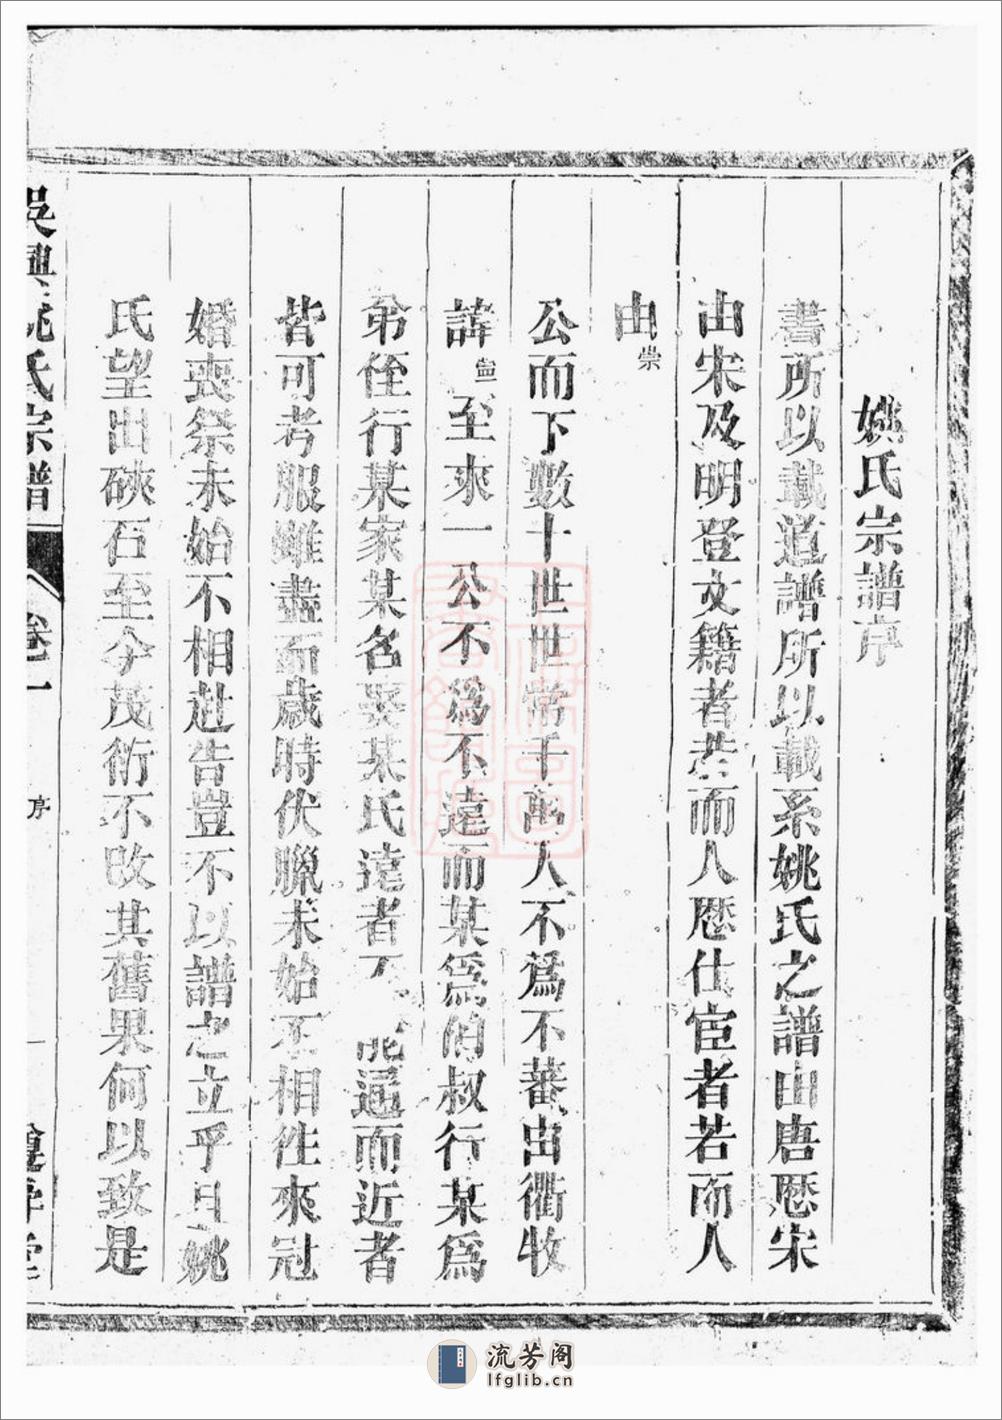 姚氏宗譜序
書所以載道譜所以載系姚氏之譜由唐歷宋
由宋及明登文籍者若而人歷仕宦者若而人
由崇
公而下數十世世常千萬人不為不蕃由衢牧
諱至來一公不為不遠而某為伯叔行某為
弟侄行某家某名娶某氏遠者不遺而近者
皆可考服雖盡而歲時伏臘未始不相往來冠
婚喪祭未始不相赴告豈不以譜之立乎且姚
氏望出硤石至今茂衍不改其舊果何以致是
吳興姚氏宗譜
卷一
序
一
流芳阁
lfglib.cn